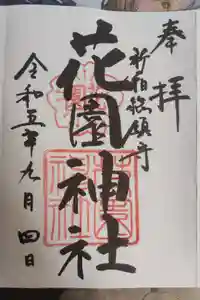 奉拝
新宿総鎮守
花園神社
令和五年九月四日